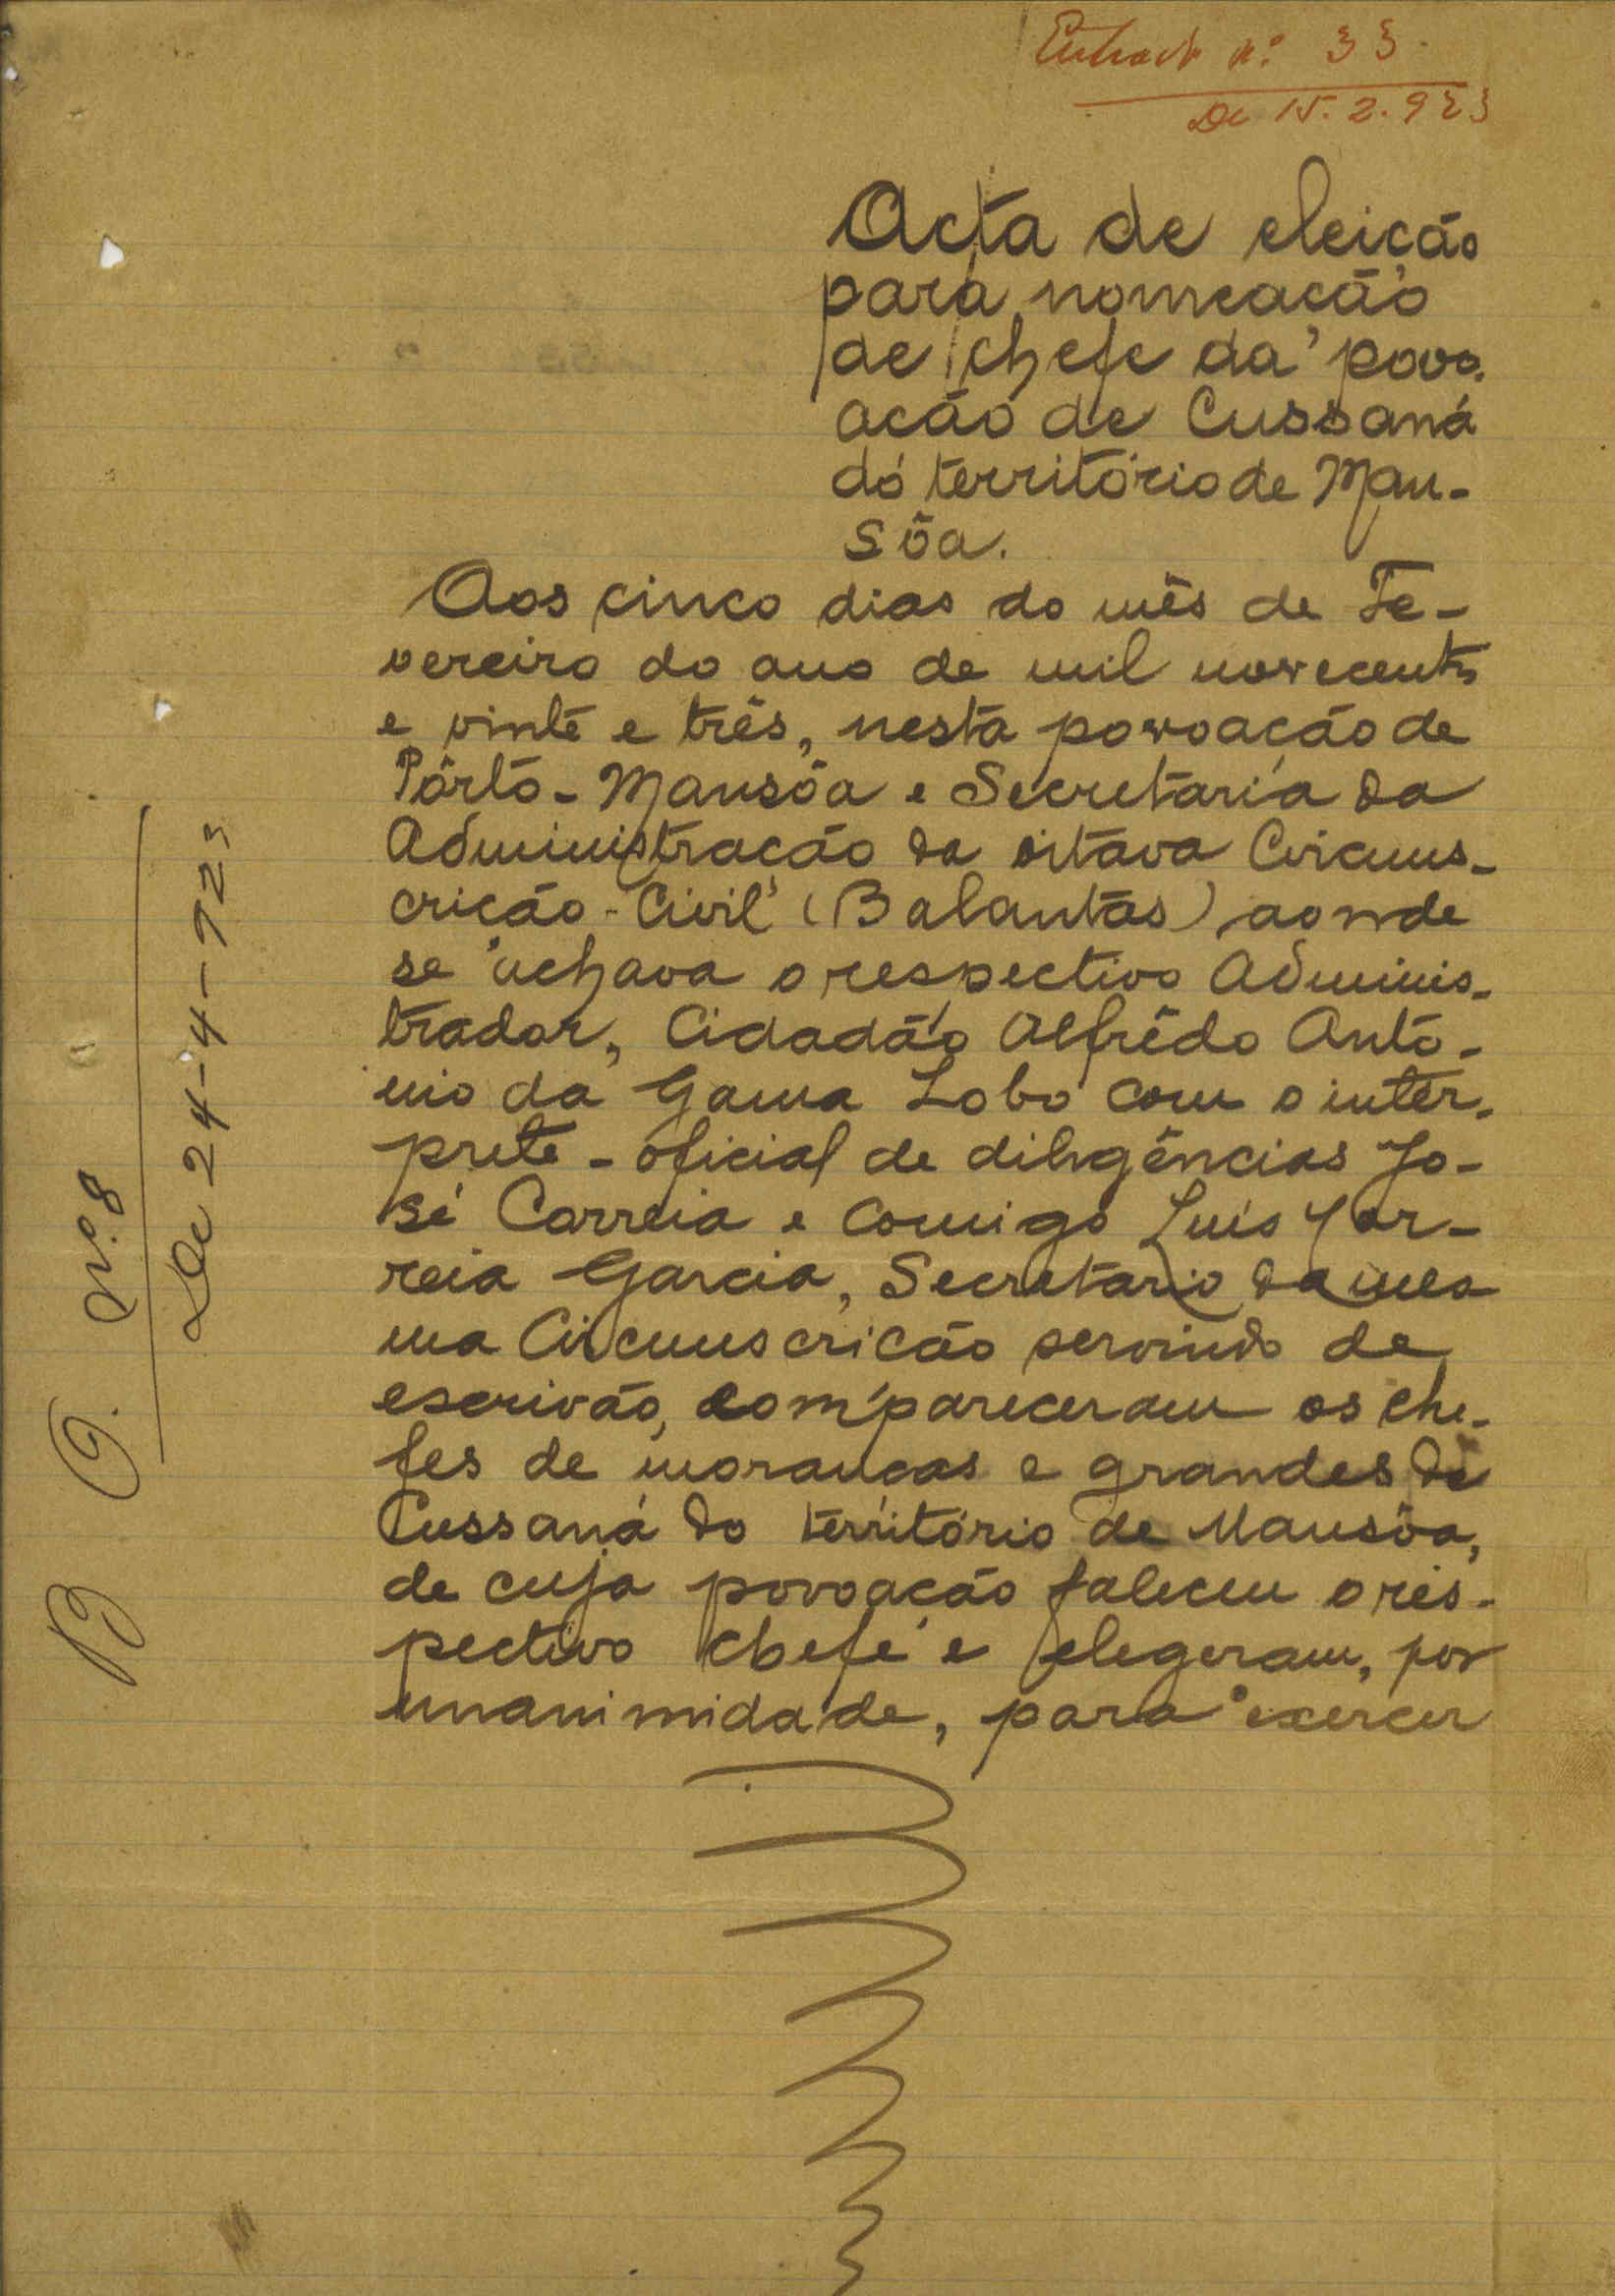 nº 33
De 15.2.923
Acta de eleição
para nomeação
de chefe da povo-
ação de Cussaná
do território de Man-
sôa.
Aos cinco dias do mês de Fe-
vereiro do ano de mil novecentos
e vinte e três, nesta povoação de
Pôrto-Mansôa e Secretaria da
Administração da oitava Circuns-
crição-Civil (Balantas) aonde
se achava o respectivo Adminis-
trador, Cidadão Alfrêdo Antó-
nio da Gama Lobo com o intér-
prete-oficial de diligências Jo-
sé Carreia e comigo Luís
reia Garcia, Secretario da mes
ma Circunscrição servindo de
escrivão, compareceram os che-
fes de moranças e grandes de
Cussaná do território de Mansôa,
de cuja povoação faleceu o res-
pectivo chefe e elegeram, por
unanimidade, para exercer
B O. Nº. 8
De 24-4-923